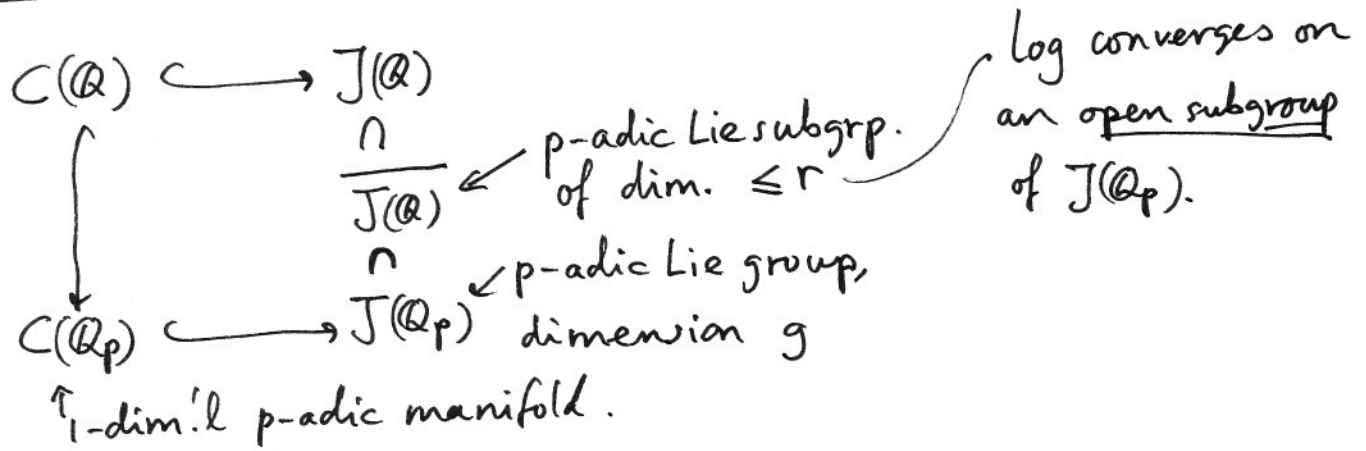 C(ℚ) ↪ J(ℚ)
∩
J(ℚ)‾ ← p-adic Lie subgrp. of dim. ≤ r
log converges on
an open subgroup
of J(ℚp).
∩
C(ℚp) ↪ J(ℚp) ← p-adic Lie group,
dimension g
↑ 1-dim'l p-adic manifold.